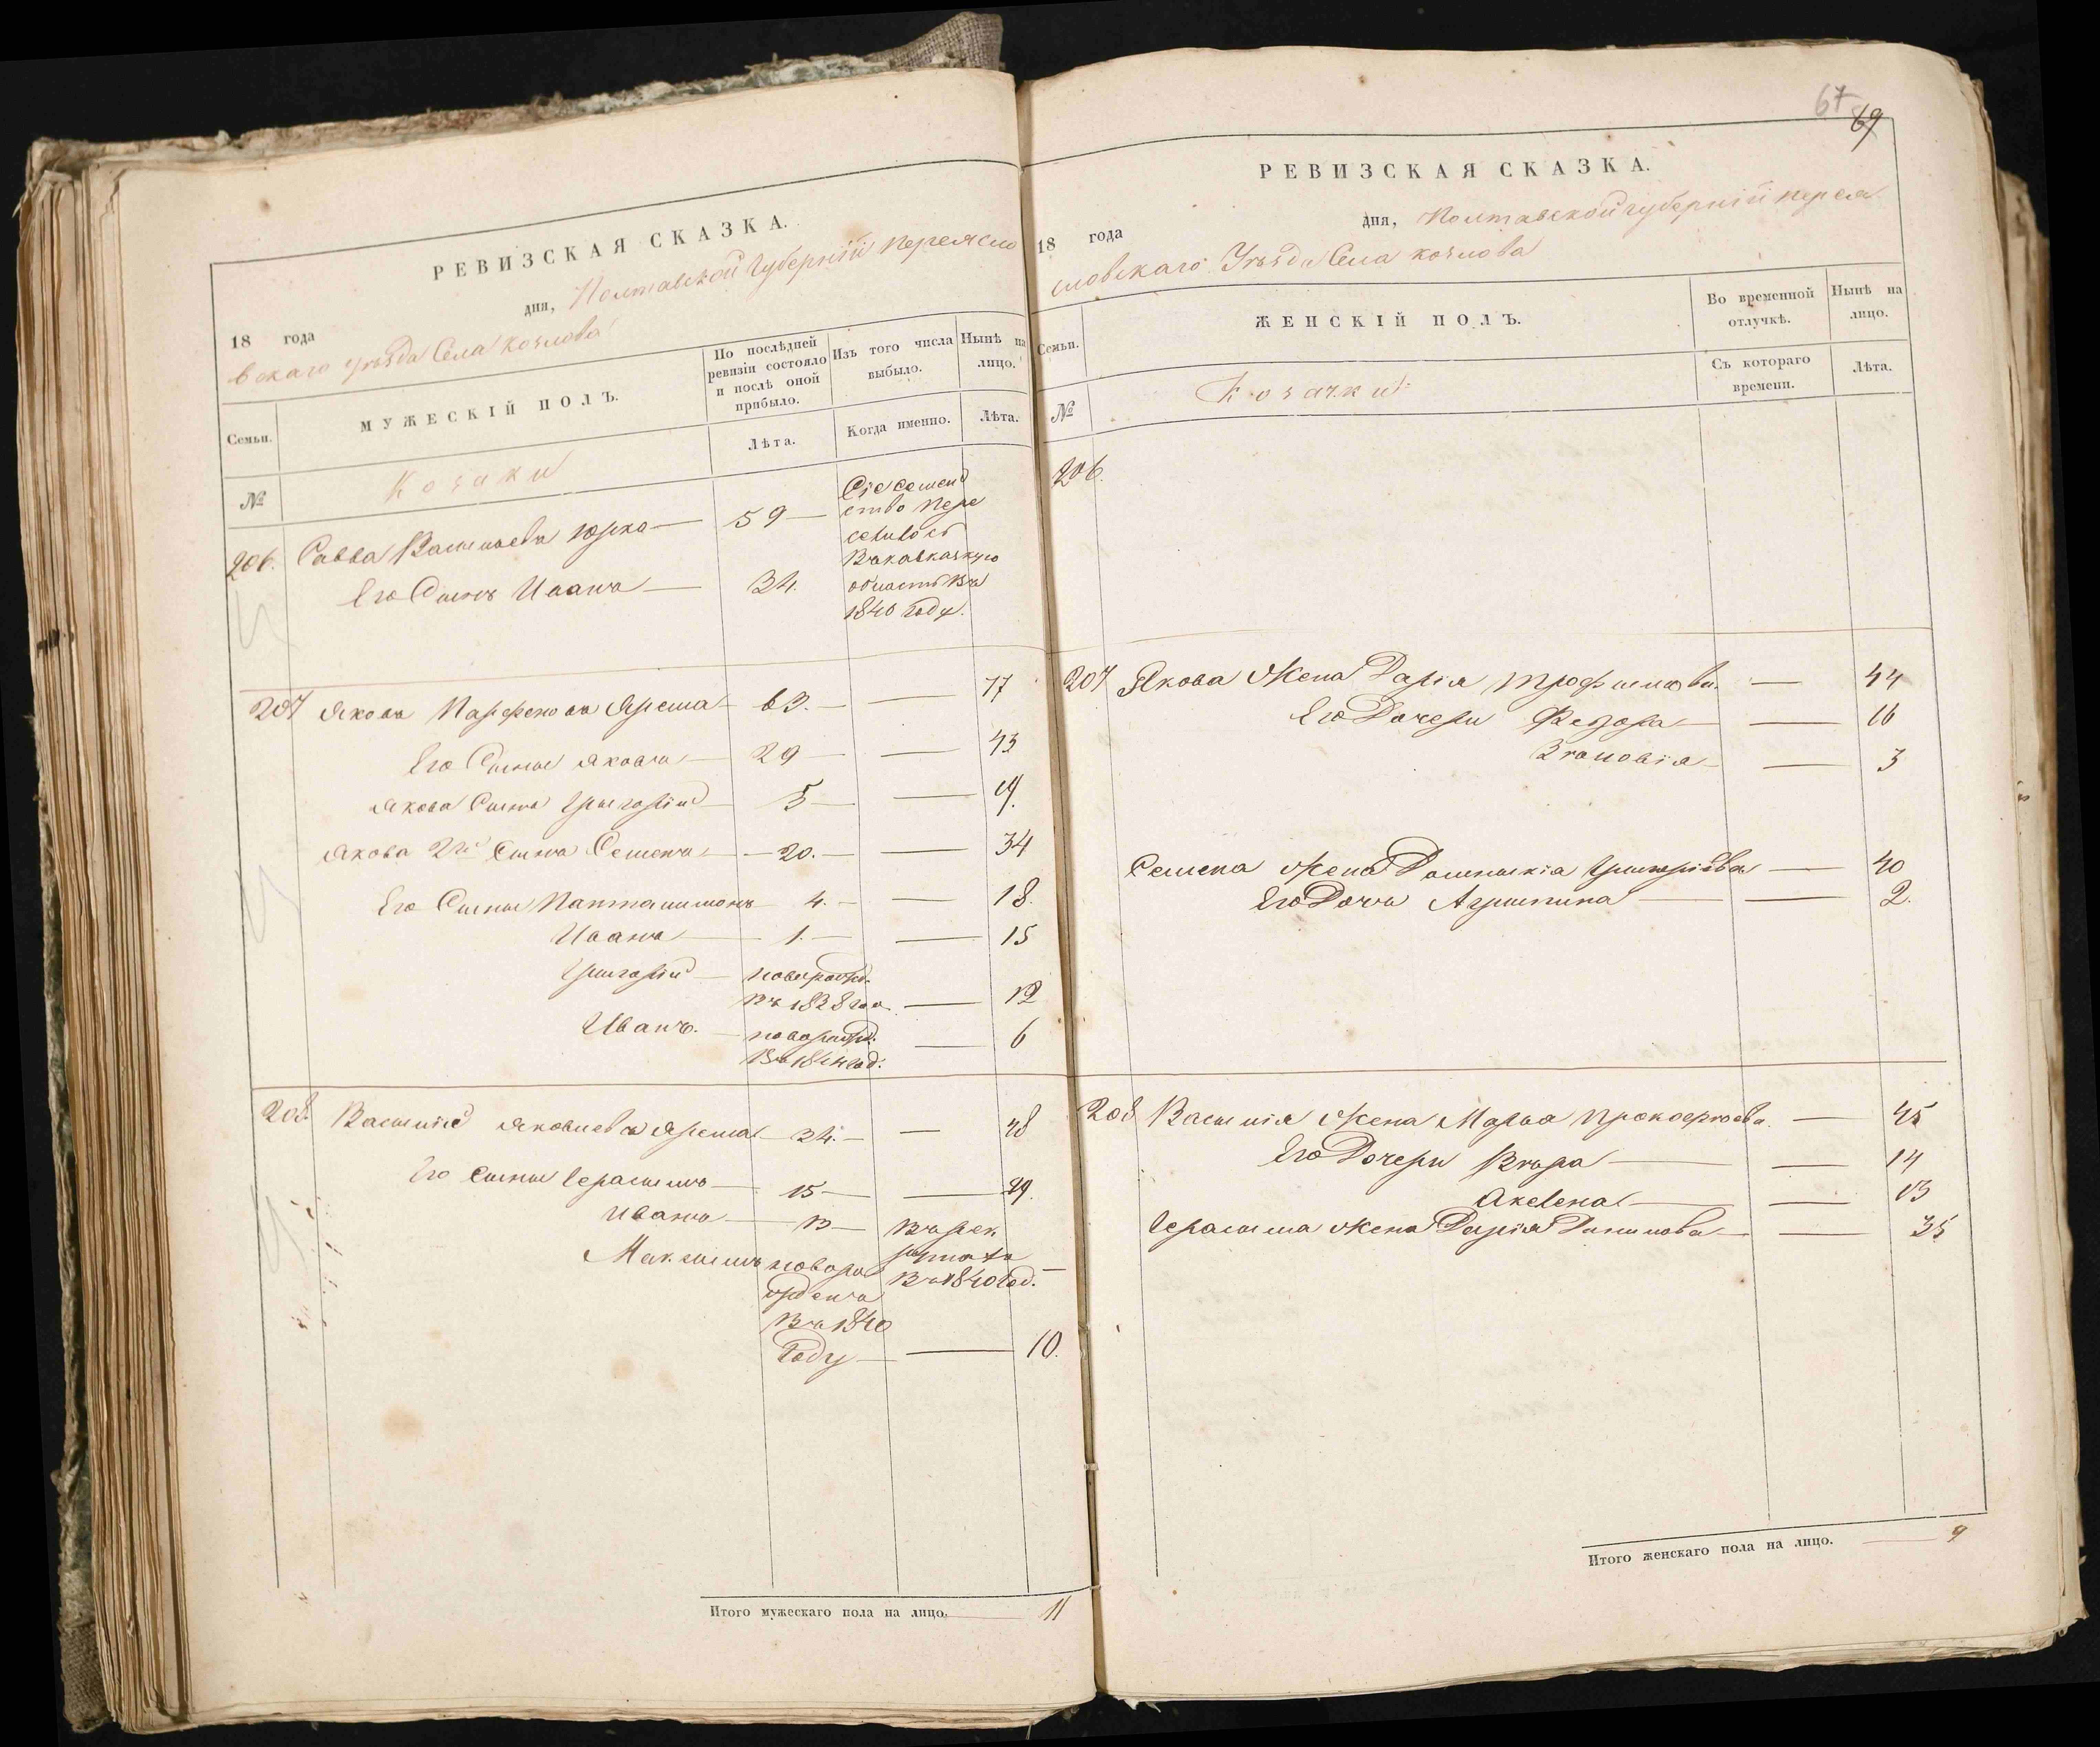 РЕВИЗСКАЯ СКАЗКА.
18 года дня, Полтавской Губерніи Переясло
вскаго уѣзда Села Козлова
Семьи.
МУЖЕСКІЙ ПОЛЪ.
По послѣдней ревизіи состояло и послѣ оной прибыло.
Изъ того числа выбыло.
Нынѣ на лицо.
№
Козаки
Лѣта.
Когда именно.
Лѣта.
206. Савва Васильевъ Юрко — 59 —
Его Сынъ Иванъ — 34.
Сіе семей
ство пере
селилось
Въ кавказкую
область Въ
1840 Году.
207 Яковъ Парфеновъ Ярема — 63. — — 77
Его Сыны Яковъ — 29 — — 43
Якова Сынъ Григорій — 5 — — 19.
Якова 2й Сынъ Семенъ — 20. — — 34
Его Сыны Пантелимонъ 4. — — 18.
Иванъ — 1. — — 15
Григорій — новорожд.
Въ 1838 год — 12
Иванъ. — новорожд.
Въ 1844 год: — 6
208. Василій Яковлевъ Ярема — 34. — — 48
Его сыны Герасимъ — 15 — — 29.
Иванъ — 13 — Въ рек
руты
Въ 1840 год. —
Максимъ новоро
жденъ
Въ 1840
Году — — 10.
Итого мужескаго пола на лицо. — 11
67
69
РЕВИЗСКАЯ СКАЗКА.
18 года дня, Полтавской губерніи перея
словскаго Уѣзда Села козлова
Семьи.
ЖЕНСКІЙ ПОЛЪ.
Во временной отлучкѣ.
Нынѣ на лицо.
№
Козачки
Съ котораго времени.
Лѣта.
206.
207 Якова Жена Дарія Трофимова. — 44
Его Дочери Федора — — 16
Зѣновія — — 3
Семена Жена Домникія Григоріева — 40
Его Дочь Агрипина — — 2.
208 Василія Жена Марья Прокофьева. — 45
Его Дочери Вѣра — — 14
Акелена — — 13
Герасима Жена Дарія Данилова — — 35
Итого женскаго пола на лицо. — 9